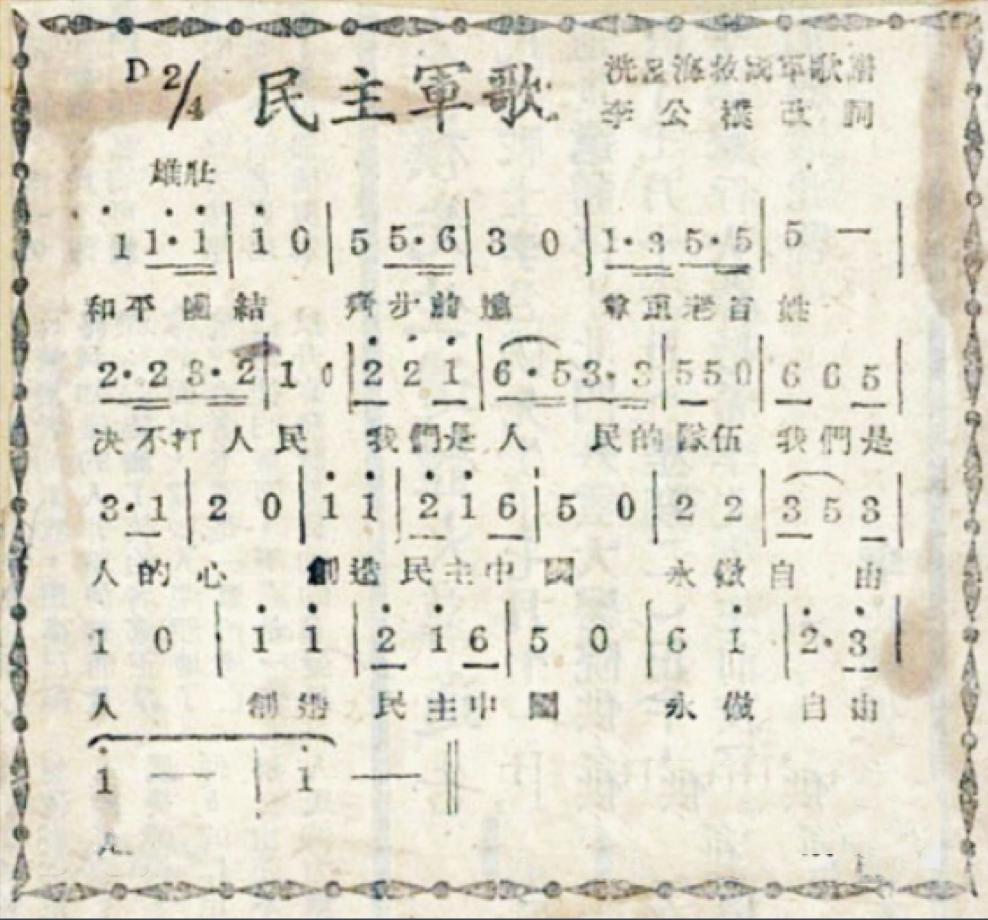 D 2/4 民主軍歌 冼星海救國軍歌譜
李公樸改詞
雄壯
1̇ 1̇·1̇ | 1̇ 0 | 5 5·6 | 3 0 | 1·3 5·5 | 5 — |
和平 團結 齊步前進 尊重老百姓
2·2 3·2 | 1 0 | 2̇ 2̇ 1̇ | 6·5 3·3 | 5 5 0 | 6 6 5 |
决不打人民 我們是人 民的隊伍 我們是
3·1 | 2 0 | 1̇ 1̇ | 2̇ 1̇ 6 | 5 0 | 2 2 | 3 5 3 |
人的心 創造民主中國 永做自 由
1 0 | 1̇ 1̇ | 2̇ 1̇ 6 | 5 0 | 6 1̇ | 2̇· 3̇ |
人 創造 民主中國 永做 自由
1̇ — | 1̇ — ‖
人